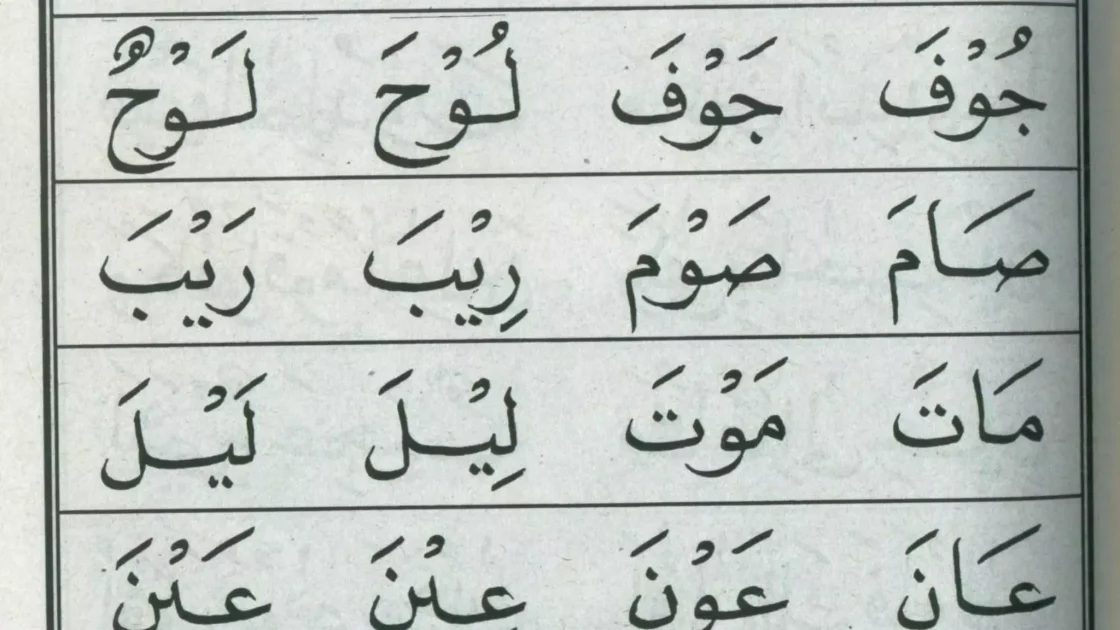 جُوْفَ جَوْفَ لُوْحَ لَوْحٌ
صَامَ صَوْمَ رِيْبَ رَيْبَ
مَاتَ مَوْتَ لِيْلَ لَيْلَ
عَانَ عَوْنَ عِيْنَ عَيْنَ